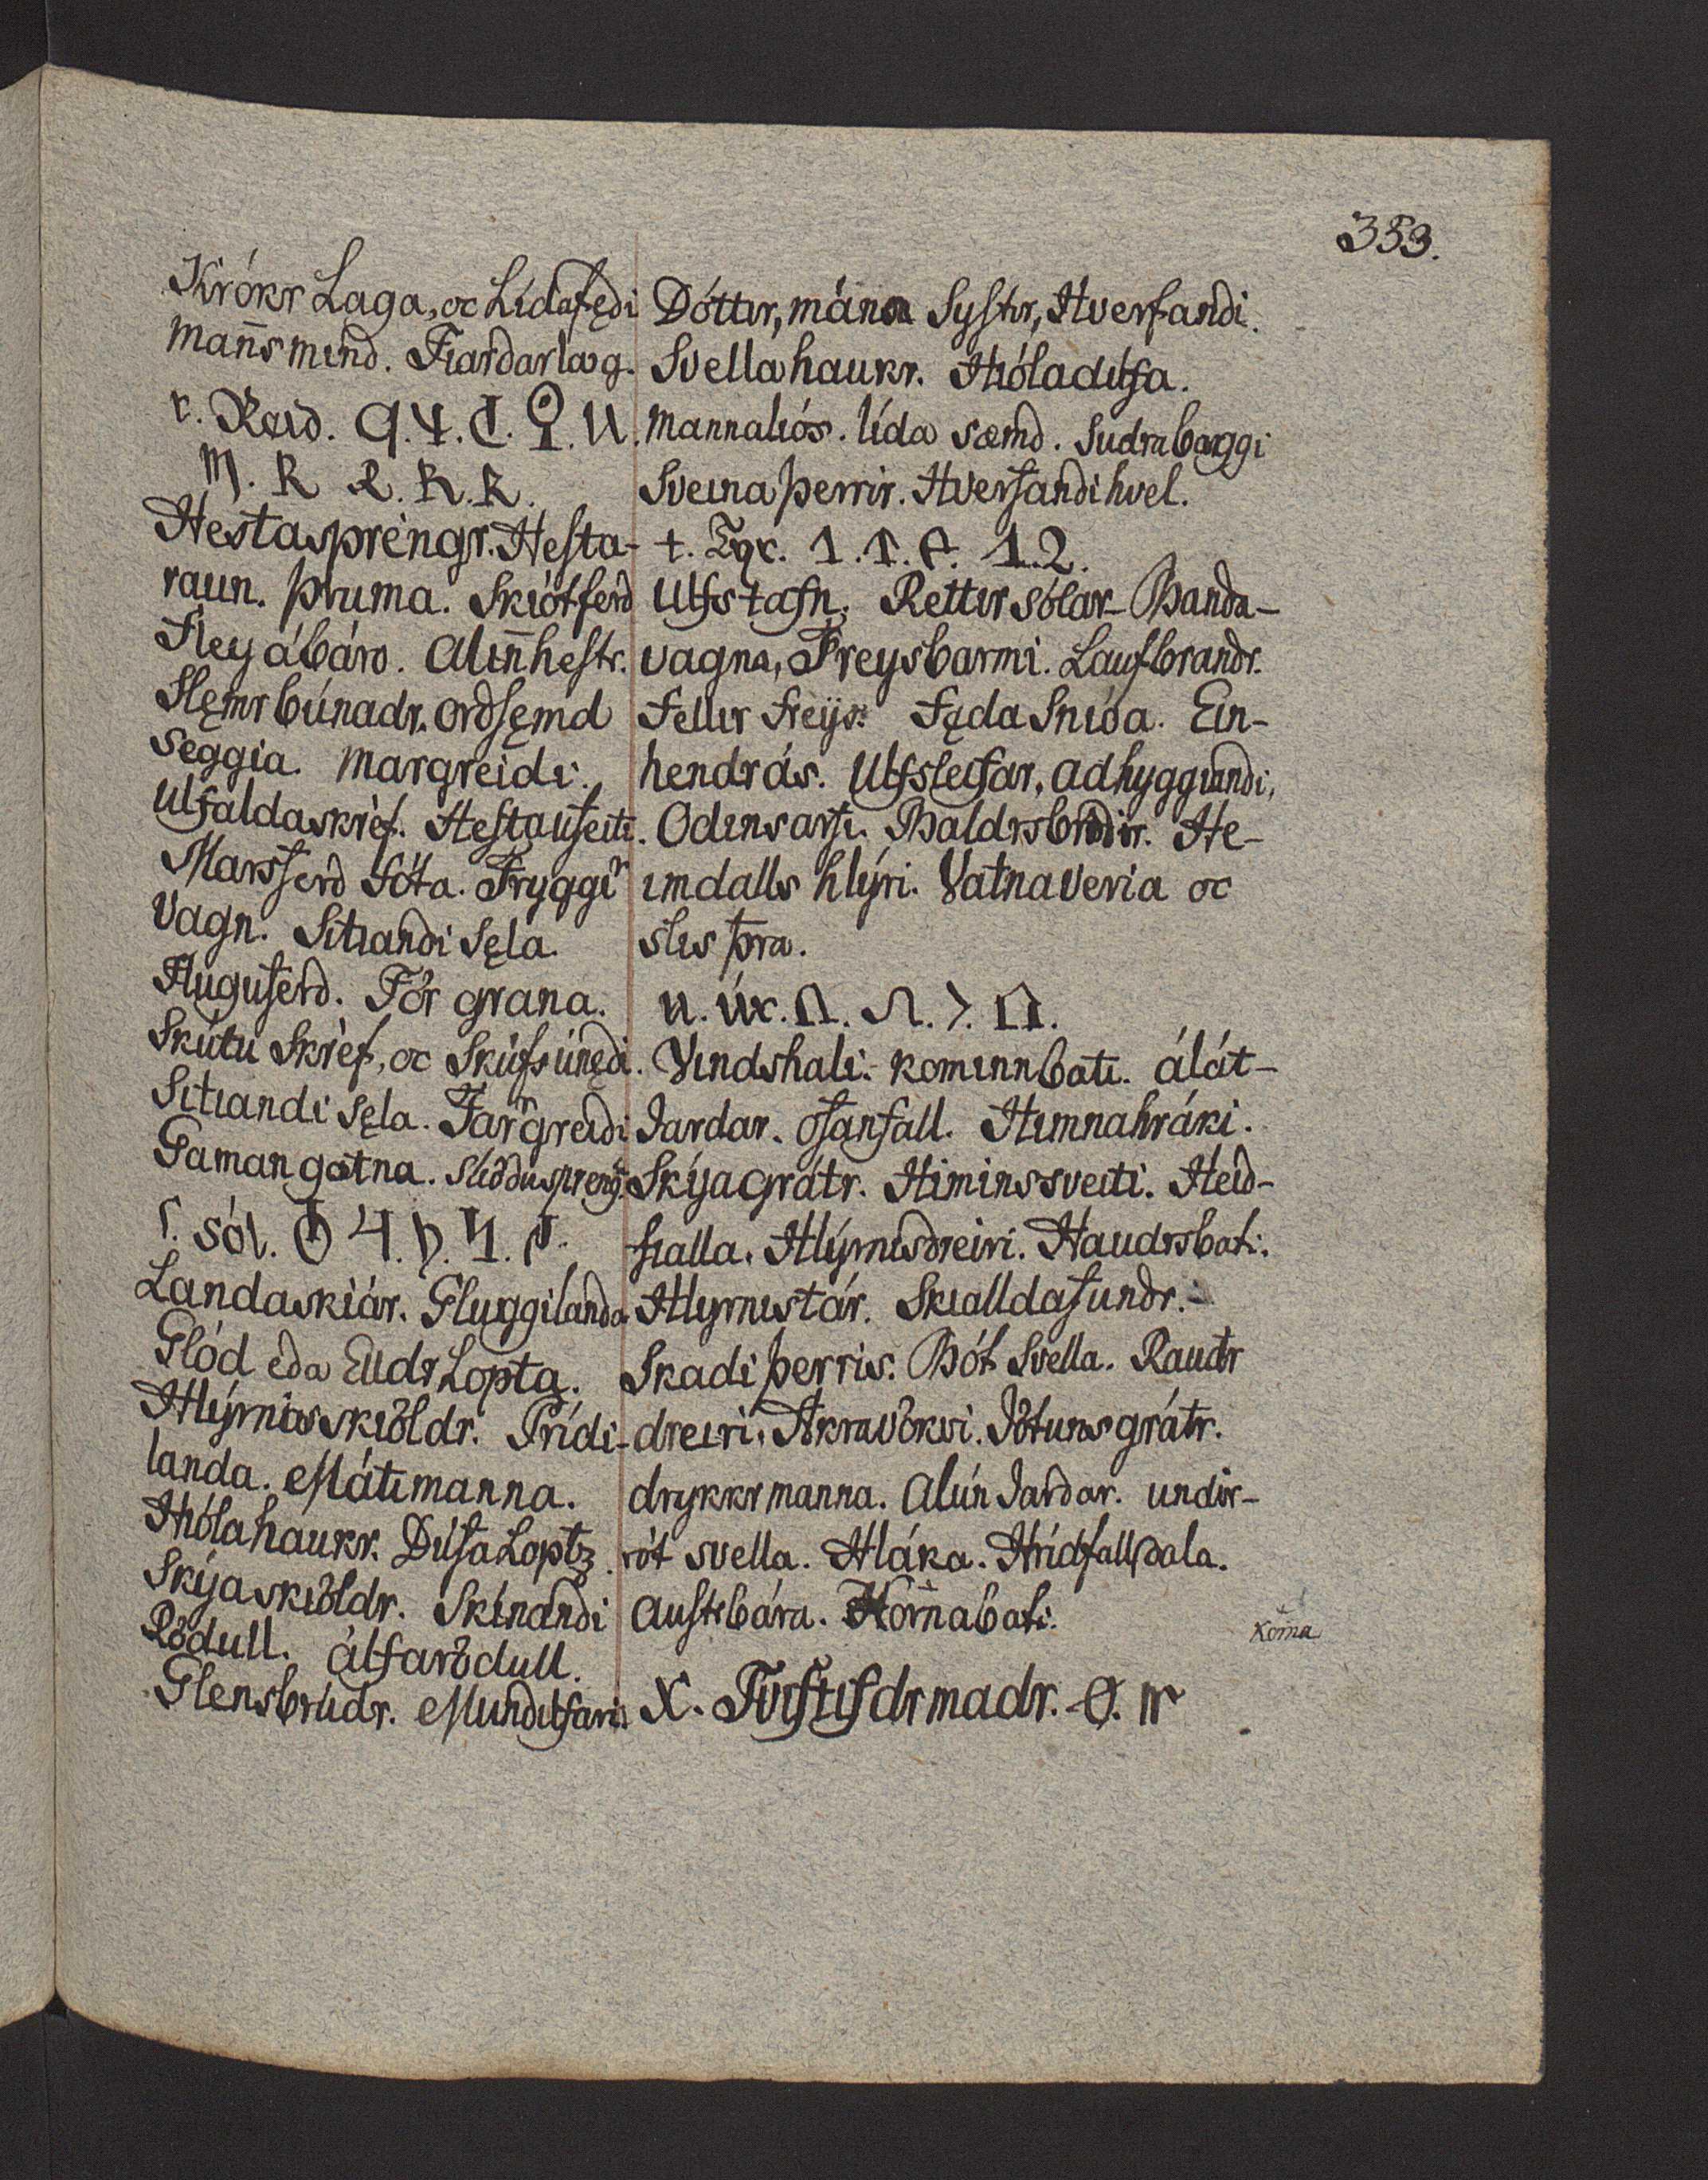 353.
Krókr Laga, oc Lídafędi
man̄s mind. Fiardarlag.
r. Reid.
M. R R. R. R.
Hestasprengr. Hesta-
raun. þruma. Skiótferd
Fley ábáro. Alin̄hestr.
Slęmr búnadr. ordsęmd
seggia. margreidi.
Ulfaldaskref.
Marsferd fóta. Tryggir
Vagn. Sitiandi sęla.
Fluguferd. Fór grana.
Skútu skref, oc
Sitiandi sęla. Fargreidi
Gaman gotna.
s. sól.
Landaskiár. Gluggi landa
Glód eda Elldr Lopta.
Hlýrnis skiöldr. Prídi-
landa. Máti manna.
Hióla haukr. Dúfa Loptz.
Skýja skiöldr. Skínandi
Rödull. álfarödull.
Glensbrúdr. Mundilfaris
Dóttir, mána Systir, Hverfandi.
Svella haukr. Hióladúfa.
mannaliós. lída sæmd. Sudrabaggi
Sveina þerrir. Hverfandi hvel.
t. Tyr. 1. 1.
Ulfs tafn. Rettir sólar-Banda-
vagna, Freysbarmi. Laufbrandr.
Fellir Freys. Fęda Snida. Ein-
hendr ás. Ulfs leifar, adhyggiandi,
Odinsarfi. Baldrsbródir. He-
imdalls hlýri. Vatna veria oc
slis þra.
u. úr.
Vindshali. kominn bati. álát-
Iardar. ofanfall. Himnahráki.
Skýagrátr. Himinssveiti. Heid-
fialla. Hlýrnisdreiri. Haudrsbati.
Hlyrnistár. Skialldafundr.
Skadi þerris. Bót Svella. Raudr
dreiri. Akravökvi. Iötuns grátr.
drykkr manna. Alún Iardar. undir-
rót svella. Hláka. Hrídfall dala.
Austrbára. Kornabati.
korna
X. Tvístifdr madr.